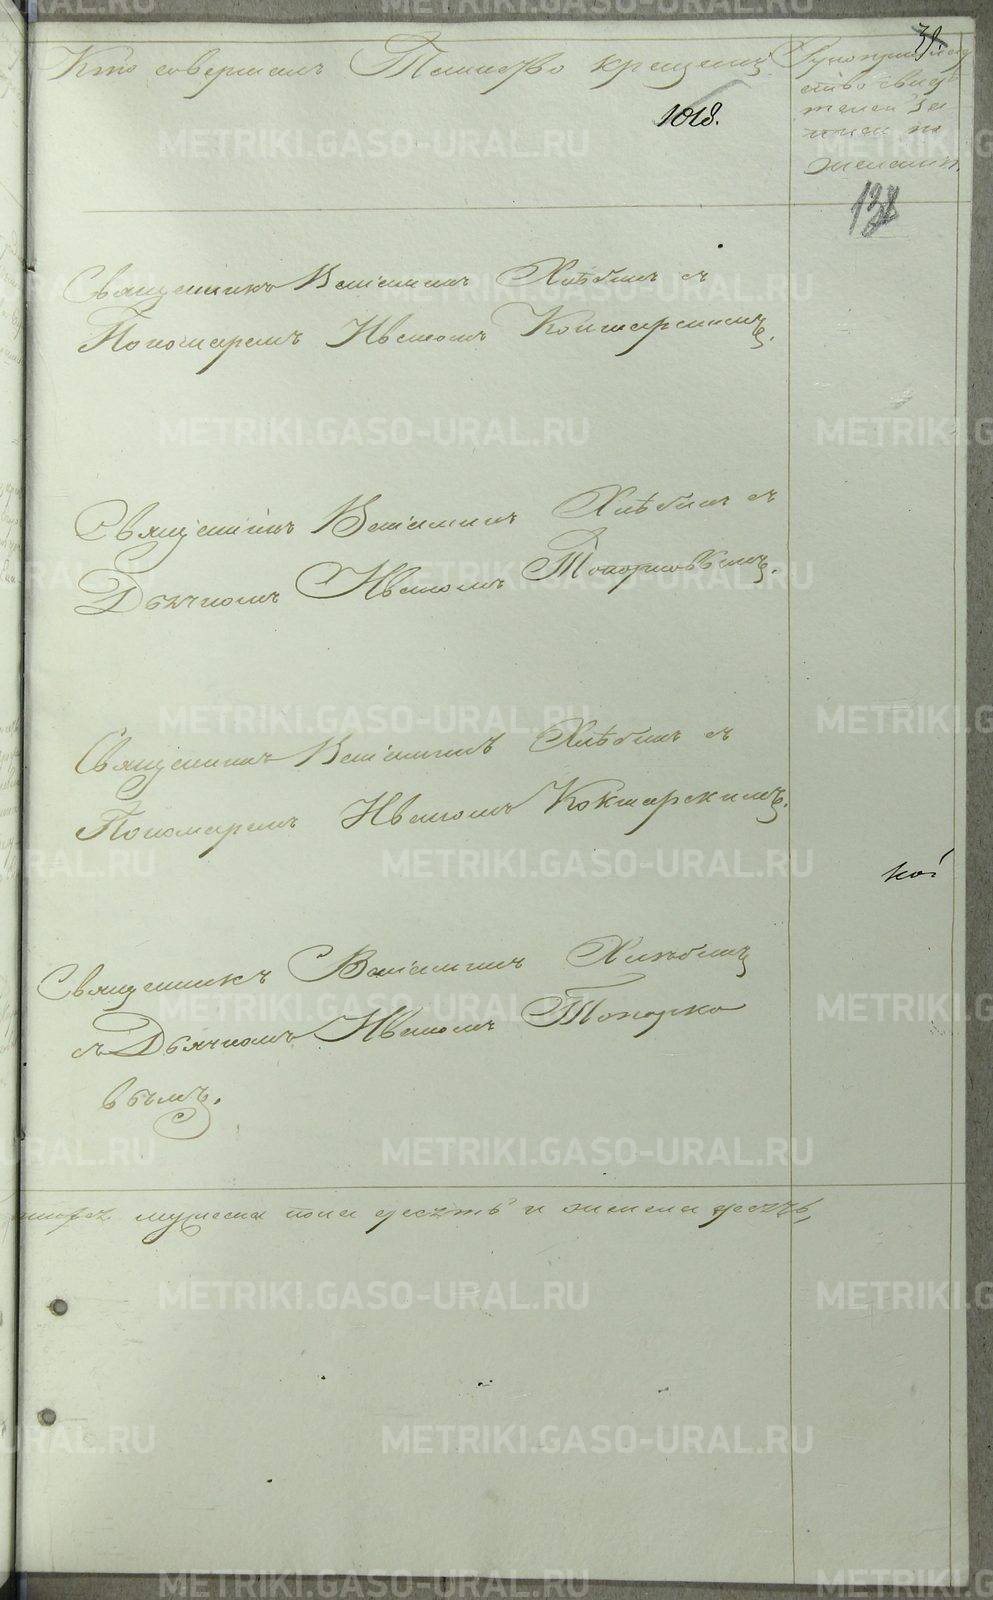 39.
Кто совершалъ Таинство крещенія
Рукоприклад
ство свидѣ
телей за
писи по
желанію.
1018.
138
Священникъ Веніаминъ Хлѣбинъ съ
Пономаремъ Иваномъ Кокшарскимъ.
Священникъ Веніаминъ Хлѣбинъ съ
Дьячкомъ Иваномъ Топорковымъ.
Священникъ Веніаминъ Хлѣбинъ съ
Пономаремъ Иваномъ Кокшарскимъ.
кої
Священникъ Веніаминъ Хлѣбинъ
съ Дьячкомъ Иваномъ Топорко
вымъ.
мужеска пола десять и женска десять,
METRIKI.GASO-URAL.RU